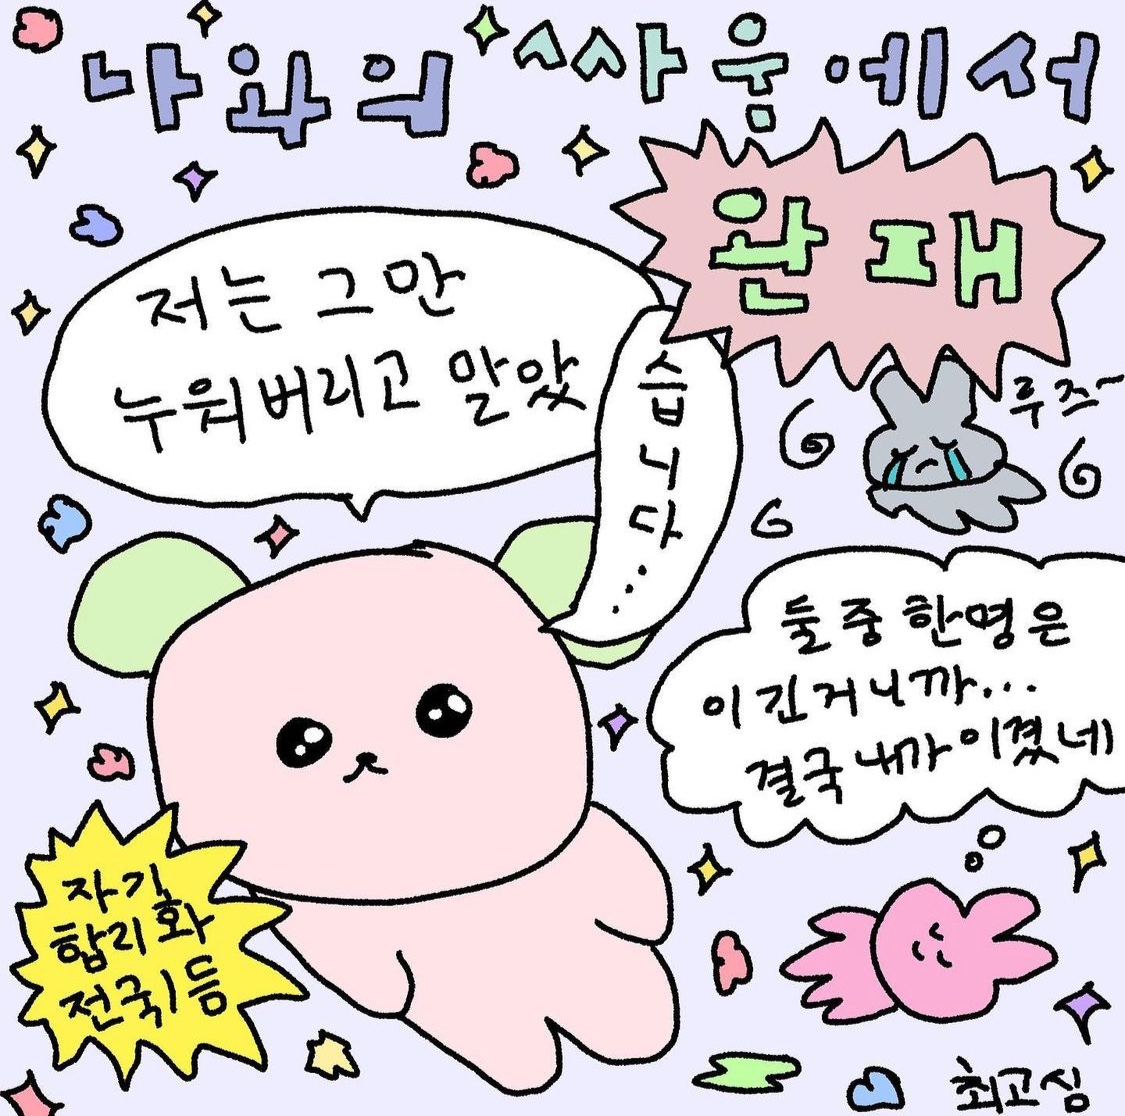 나와의 싸움에서
완패
저는 그만
누워버리고 말았
습
니
다
...
루즈~
둘 중 한명은
이긴거니까...
결국 내가 이겼네
자기
합리화
전국1등
최고심